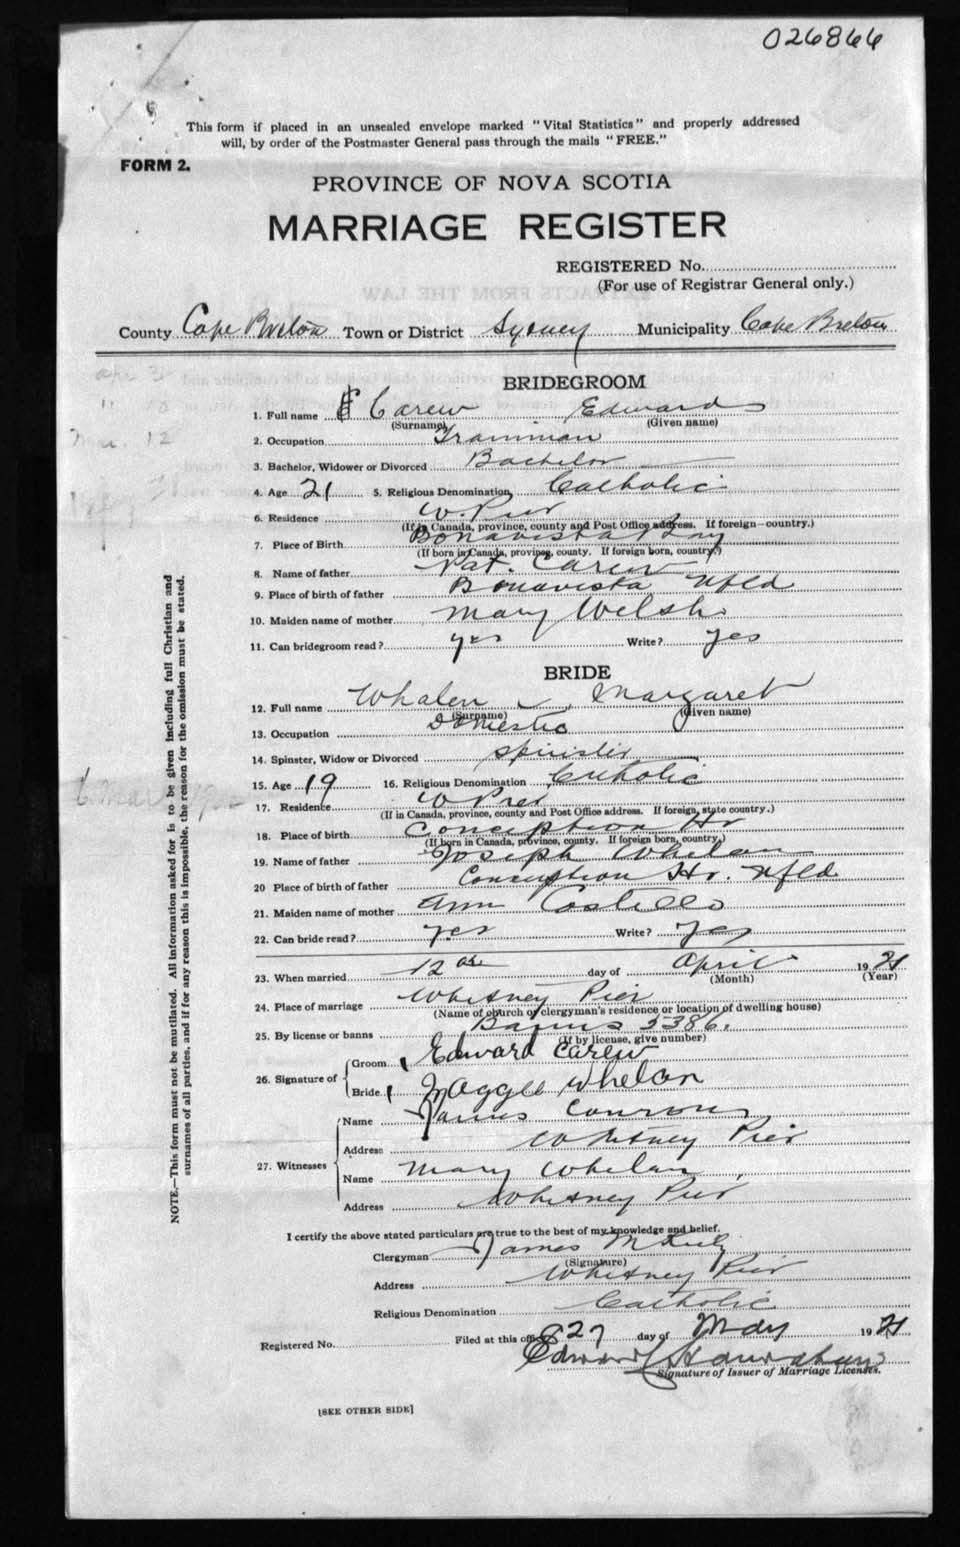 026866
This form if placed in an unsealed envelope marked "Vital Statistics" and properly addressed
will, by order of the Postmaster General pass through the mails "FREE."
FORM 2.
PROVINCE OF NOVA SCOTIA
MARRIAGE REGISTER
REGISTERED No.
(For use of Registrar General only.)
County Cape Breton Town or District Sydney Municipality Cape Breton
BRIDEGROOM
1. Full name Carew Edward
(Surname) (Given name)
2. Occupation Trainman
3. Bachelor, Widower or Divorced Bachelor
4. Age 21 5. Religious Denomination Catholic
6. Residence W. Pier
(If in Canada, province, county and Post Office address. If foreign—country.)
7. Place of Birth Bonavista Bay
(If born in Canada, province, county. If foreign born, country.)
8. Name of father Pat. Carew
9. Place of birth of father Bonavista Nfld
10. Maiden name of mother Mary Welsh
11. Can bridegroom read? yes Write? yes
BRIDE
12. Full name Whalen Margaret
(Surname) (Given name)
13. Occupation Domestic
14. Spinster, Widow or Divorced Spinster
15. Age 19 16. Religious Denomination Catholic
17. Residence W Pier
(If in Canada, province, county and Post Office address. If foreign, state country.)
18. Place of birth Conception Hr
(If born in Canada, province, county. If foreign born, country.)
19. Name of father Joseph Whelan
20 Place of birth of father Conception Hr. Nfld
21. Maiden name of mother Ann Costello
22. Can bride read? yes Write? yes
23. When married 12 day of April 1921
(Month) (Year)
24. Place of marriage Whitney Pier
(Name of church or clergyman's residence or location of dwelling house)
25. By license or banns Banns 5386.
(If by license, give number)
26. Signature of Groom Edward Carew
Bride Maggie Whelan
27. Witnesses Name James
Address Whitney Pier
Name Mary Whelan
Address Whitney Pier
I certify the above stated particulars are true to the best of my knowledge and belief.
Clergyman James
(Signature)
Address Whitney Pier
Religious Denomination Catholic
Registered No. Filed at this office 27 day of May 1921
Edward
Signature of Issuer of Marriage Licenses.
[SEE OTHER SIDE]
NOTE.—This form must not be mutilated. All information asked for is to be given including full Christian and
surnames of all parties, and if for any reason this is impossible, the reason for the omission must be stated.